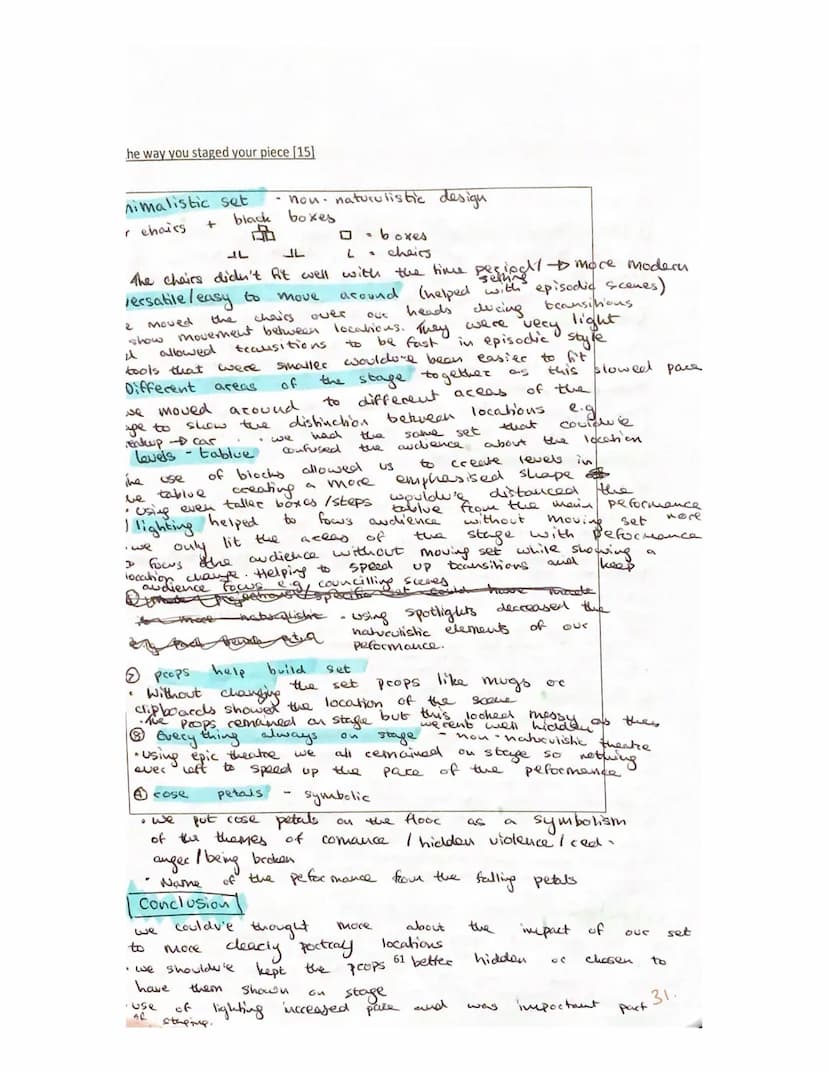 he way you staged your piece [15]
nimalistic set - non-naturalistic design
r chairs + black boxes
= boxes
= chairs
The chairs didn't fit well with the time period/ setting → more modern
versatile/easy to move around (helped with episodic scenes)
e moved the chairs over our heads during transitions
show movement between locations. They were very light
d allowed transitions to be fast in episodic style
tools that were smaller would've been easier to fit
together as this slowed pace
Different areas of the stage
we moved around to different areas of the
age to show the distinction between locations e.g
eakup → car . we had the same set that could've
confused the audience about the location
levels - tablue
he use of blocks allowed us to create levels in
ue tablue creating a more emphasised shape
using even taller boxes/steps would've distanced the
tablue from the main performance
lighting helped to focus audience without moving set more
we only lit the areas of the stage with performance
focus the audience without moving set while showing a
location change. Helping to speed up transitions and keep
audience focus e.g councilling scenes
• using spotlights decreased the
naturalistic elements of our
performance.
② props help build set
• Without changing the set props like mugs or
clipboards showed the location of the scene
• The props remained on stage but this looked messy as they
werent well hidden
③ Everything always on stage - non-naturalistic theatre
• Using epic theatre we all remained on stage so nothing
ever left to speed up the pace of the performance
④ rose petals - symbolic
• we put rose petals on the floor as a symbolism
of the themes of romance / hidden violence / red -
anger / being broken
• Name of the performance from the falling petals
Conclusion
we could've thought more about the impact of our set
to more clearly portray locations
• we should've kept the props better hidden or chosen to
61
have them shown on stage
31.
• use of lighting increased pace and was important part
of staging.